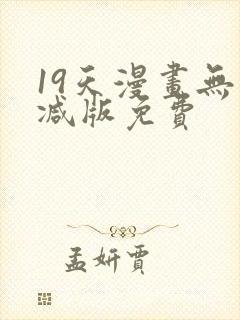 19天漫畫無
减版免費
孟妍賈